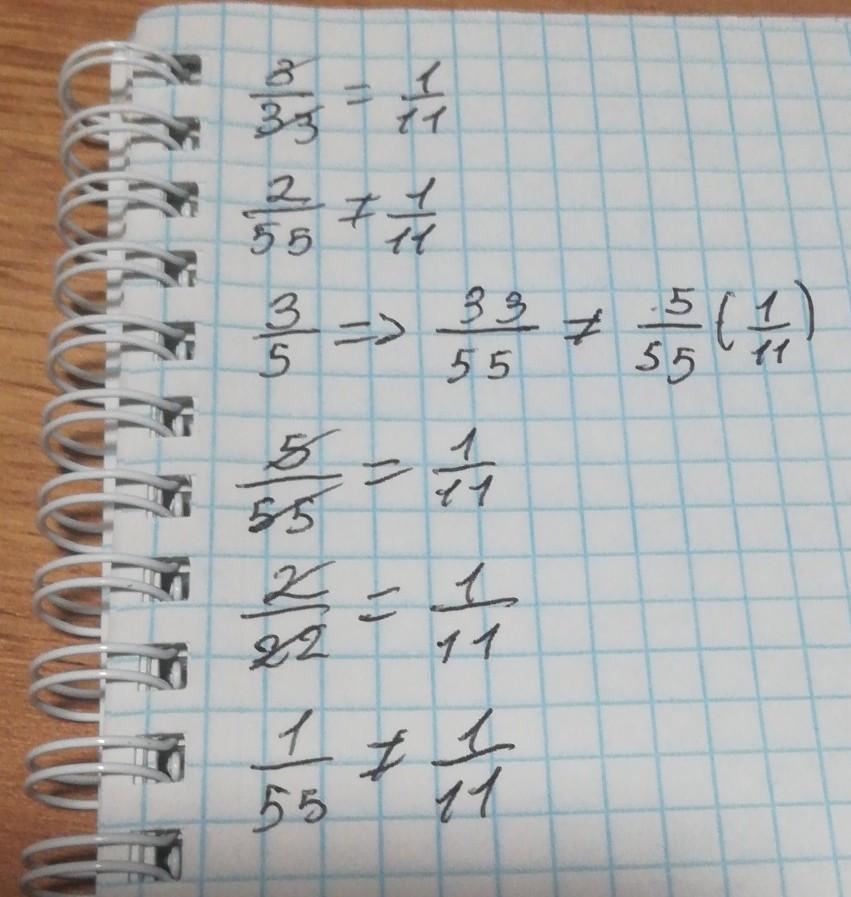 3/33 = 1/11
2/55 ≠ 1/11
3/5 => 33/55 ≠ 5/55 (1/11)
5/55 = 1/11
2/22 = 1/11
1/55 ≠ 1/11